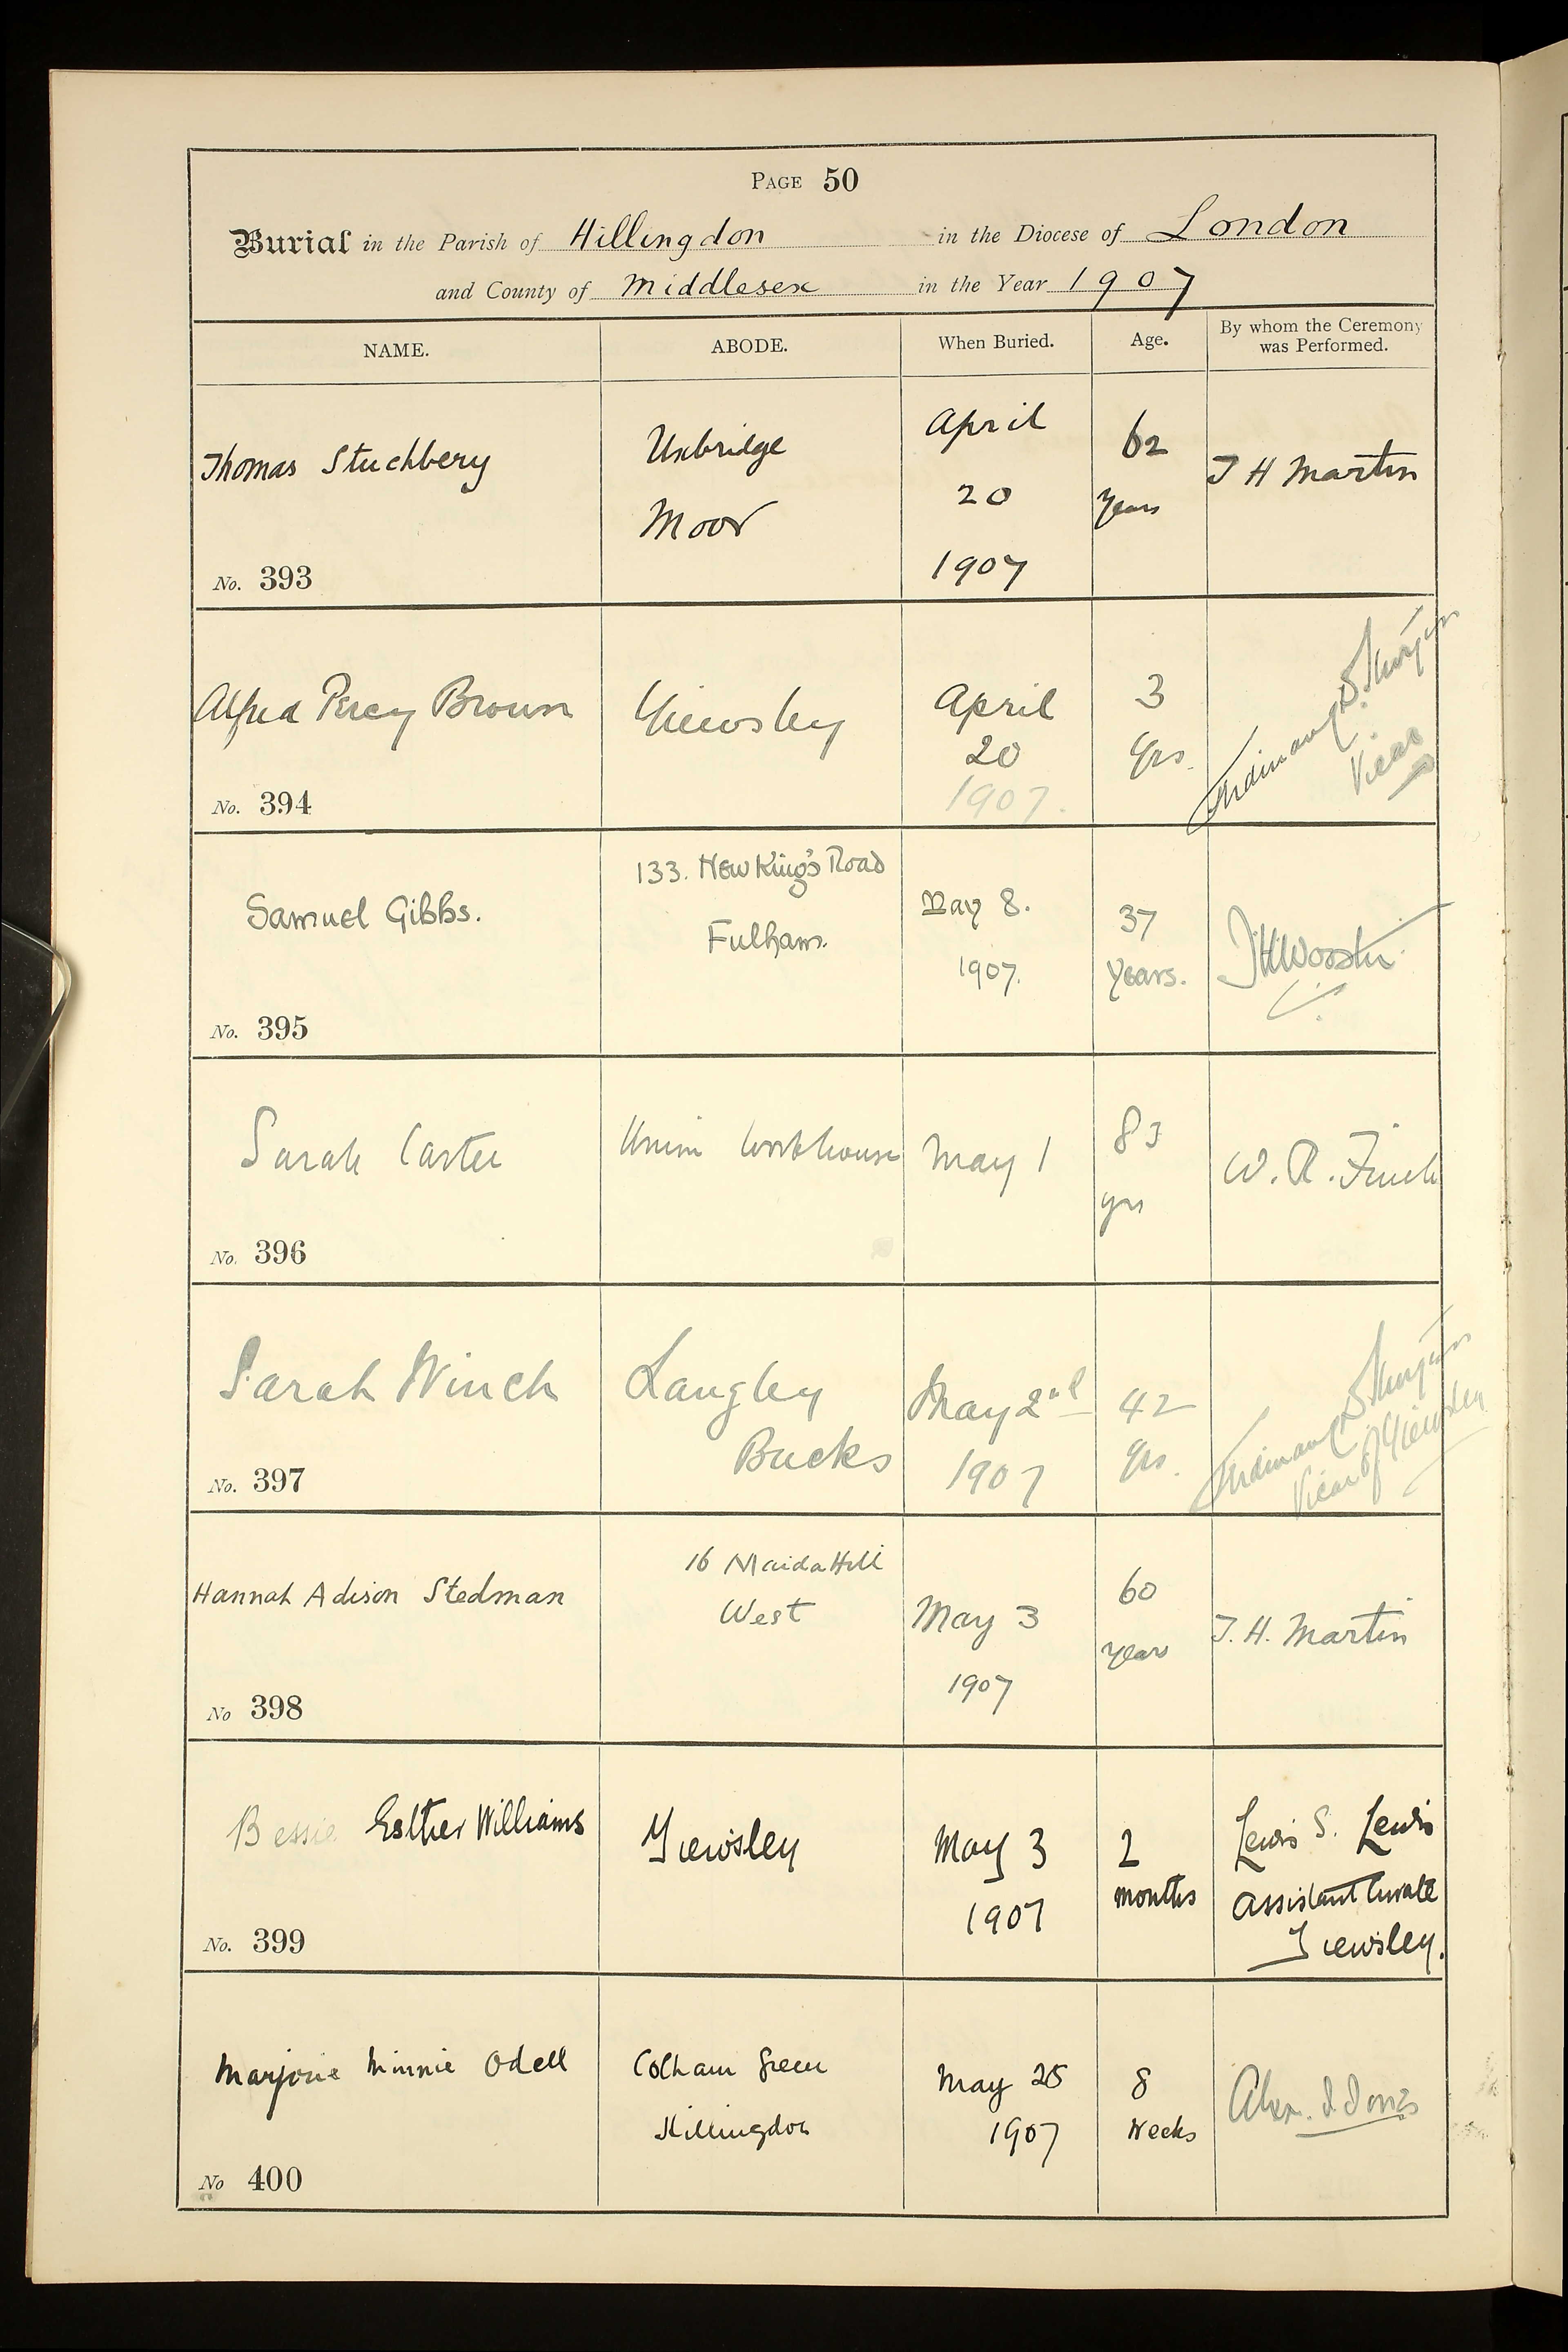 PAGE 50
Burial in the Parish of Hillingdon in the Diocese of London
and County of Middlesex in the Year 1907
NAME. ABODE. When Buried. Age. By whom the Ceremony was Performed.
Thomas Stuchbery
No. 393
Uxbridge
Moor
April
20
1907
62
years
T H Martin
Alfred Percy Brown
No. 394
Yiewsley
April
20
1907.
3
Yrs.
Vicar
Samuel Gibbs.
No. 395
133. New King's Road
Fulham.
May 8.
1907.
37
Years.
Sarah Carter
No. 396
Union Workhouse
May 1
83
yrs
W. R. Finch
Sarah Winch
No. 397
Langley
Bucks
May 2nd
1907
42
Yrs.
Vicar of Yiewsley
Hannah Adison Stedman
No 398
16 Maida Hill
West
May 3
1907
60
years
T. H. Martin
Bessie Esther Williams
No. 399
Yiewsley
May 3
1907
2
months
Lewis S. Lewis
Assistant Curate
Yiewsley.
Marjorie Minnie Odell
No 400
Colham Green
Hillingdon
May 25
1907
8
Weeks